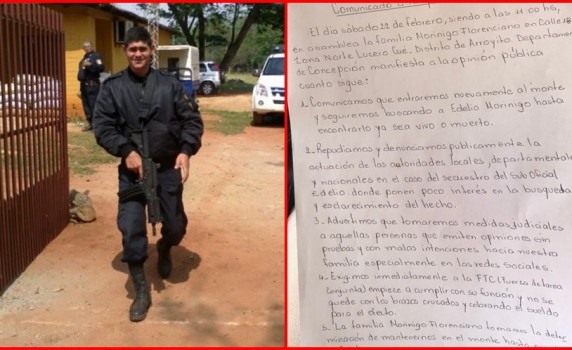 Comunicado a
El día sábado 22 de febrero, siendo a las 11:00 hs,
en asamblea la familia Morinigo Florenciano en Calle 18
Zona Norte Lucero Cue. Distrito de Arroyito Departamen
de Concepción manifiesta a la opinión pública
cuanto sigue:
1. Comunicamos que entraremos nuevamente al monte
y seguiremos buscando a Edelio Morinigo hasta
encontrarlo ya sea vivo o muerto.
2. Repudiamos y denunciamos publicamente la
actuación de las autoridades locales, departamentale
y nacionales en el caso del secuestro del Sub Oficial
Edelio. donde ponen poco interés en la busqueda
y esclarecimiento del hecho.
3. Advertimos que tomaremos medidas judiciales
a aquellas personas que emiten opiniones sin
pruebas y con malas intenciones hacia nuestra
familia especialmente en las redes sociales.
4. Exigimos inmediatamente a la FTC (Fuerza de tarea
conjunta) empiece a cumplir con su función y no se
quede con los brazos cruzados y cobrando el sueldo
para el efecto.
5. La familia Morinigo Florenciano tomamos la deter
minación de mantenernos en el monte hasta